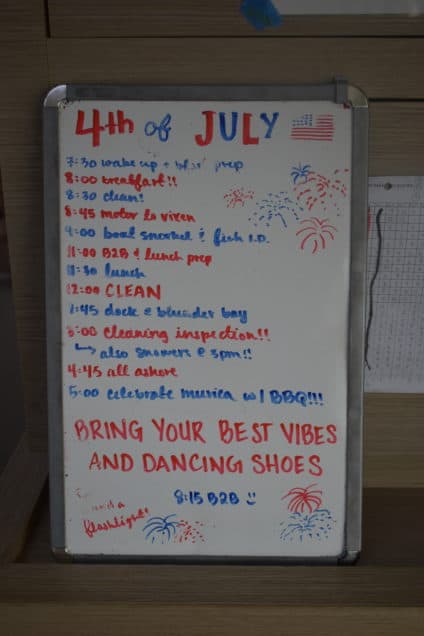 4th of JULY
7:30 wake up + bfast prep
8:00 breakfast!!
8:30 clean!
8:45 motor to vixen
9:00 boat snorkel & fish I.D.
11:00 B2B & lunch prep
11:30 lunch
12:00 CLEAN
1:45 dock @ blunder bay
3:00 cleaning inspection!!
↳ also showers @ 3pm!!
4:45 all ashore
5:00 celebrate murica w/ BBQ!!!
BRING YOUR BEST VIBES
AND DANCING SHOES
8:15 B2B :)
and a
flashlight!